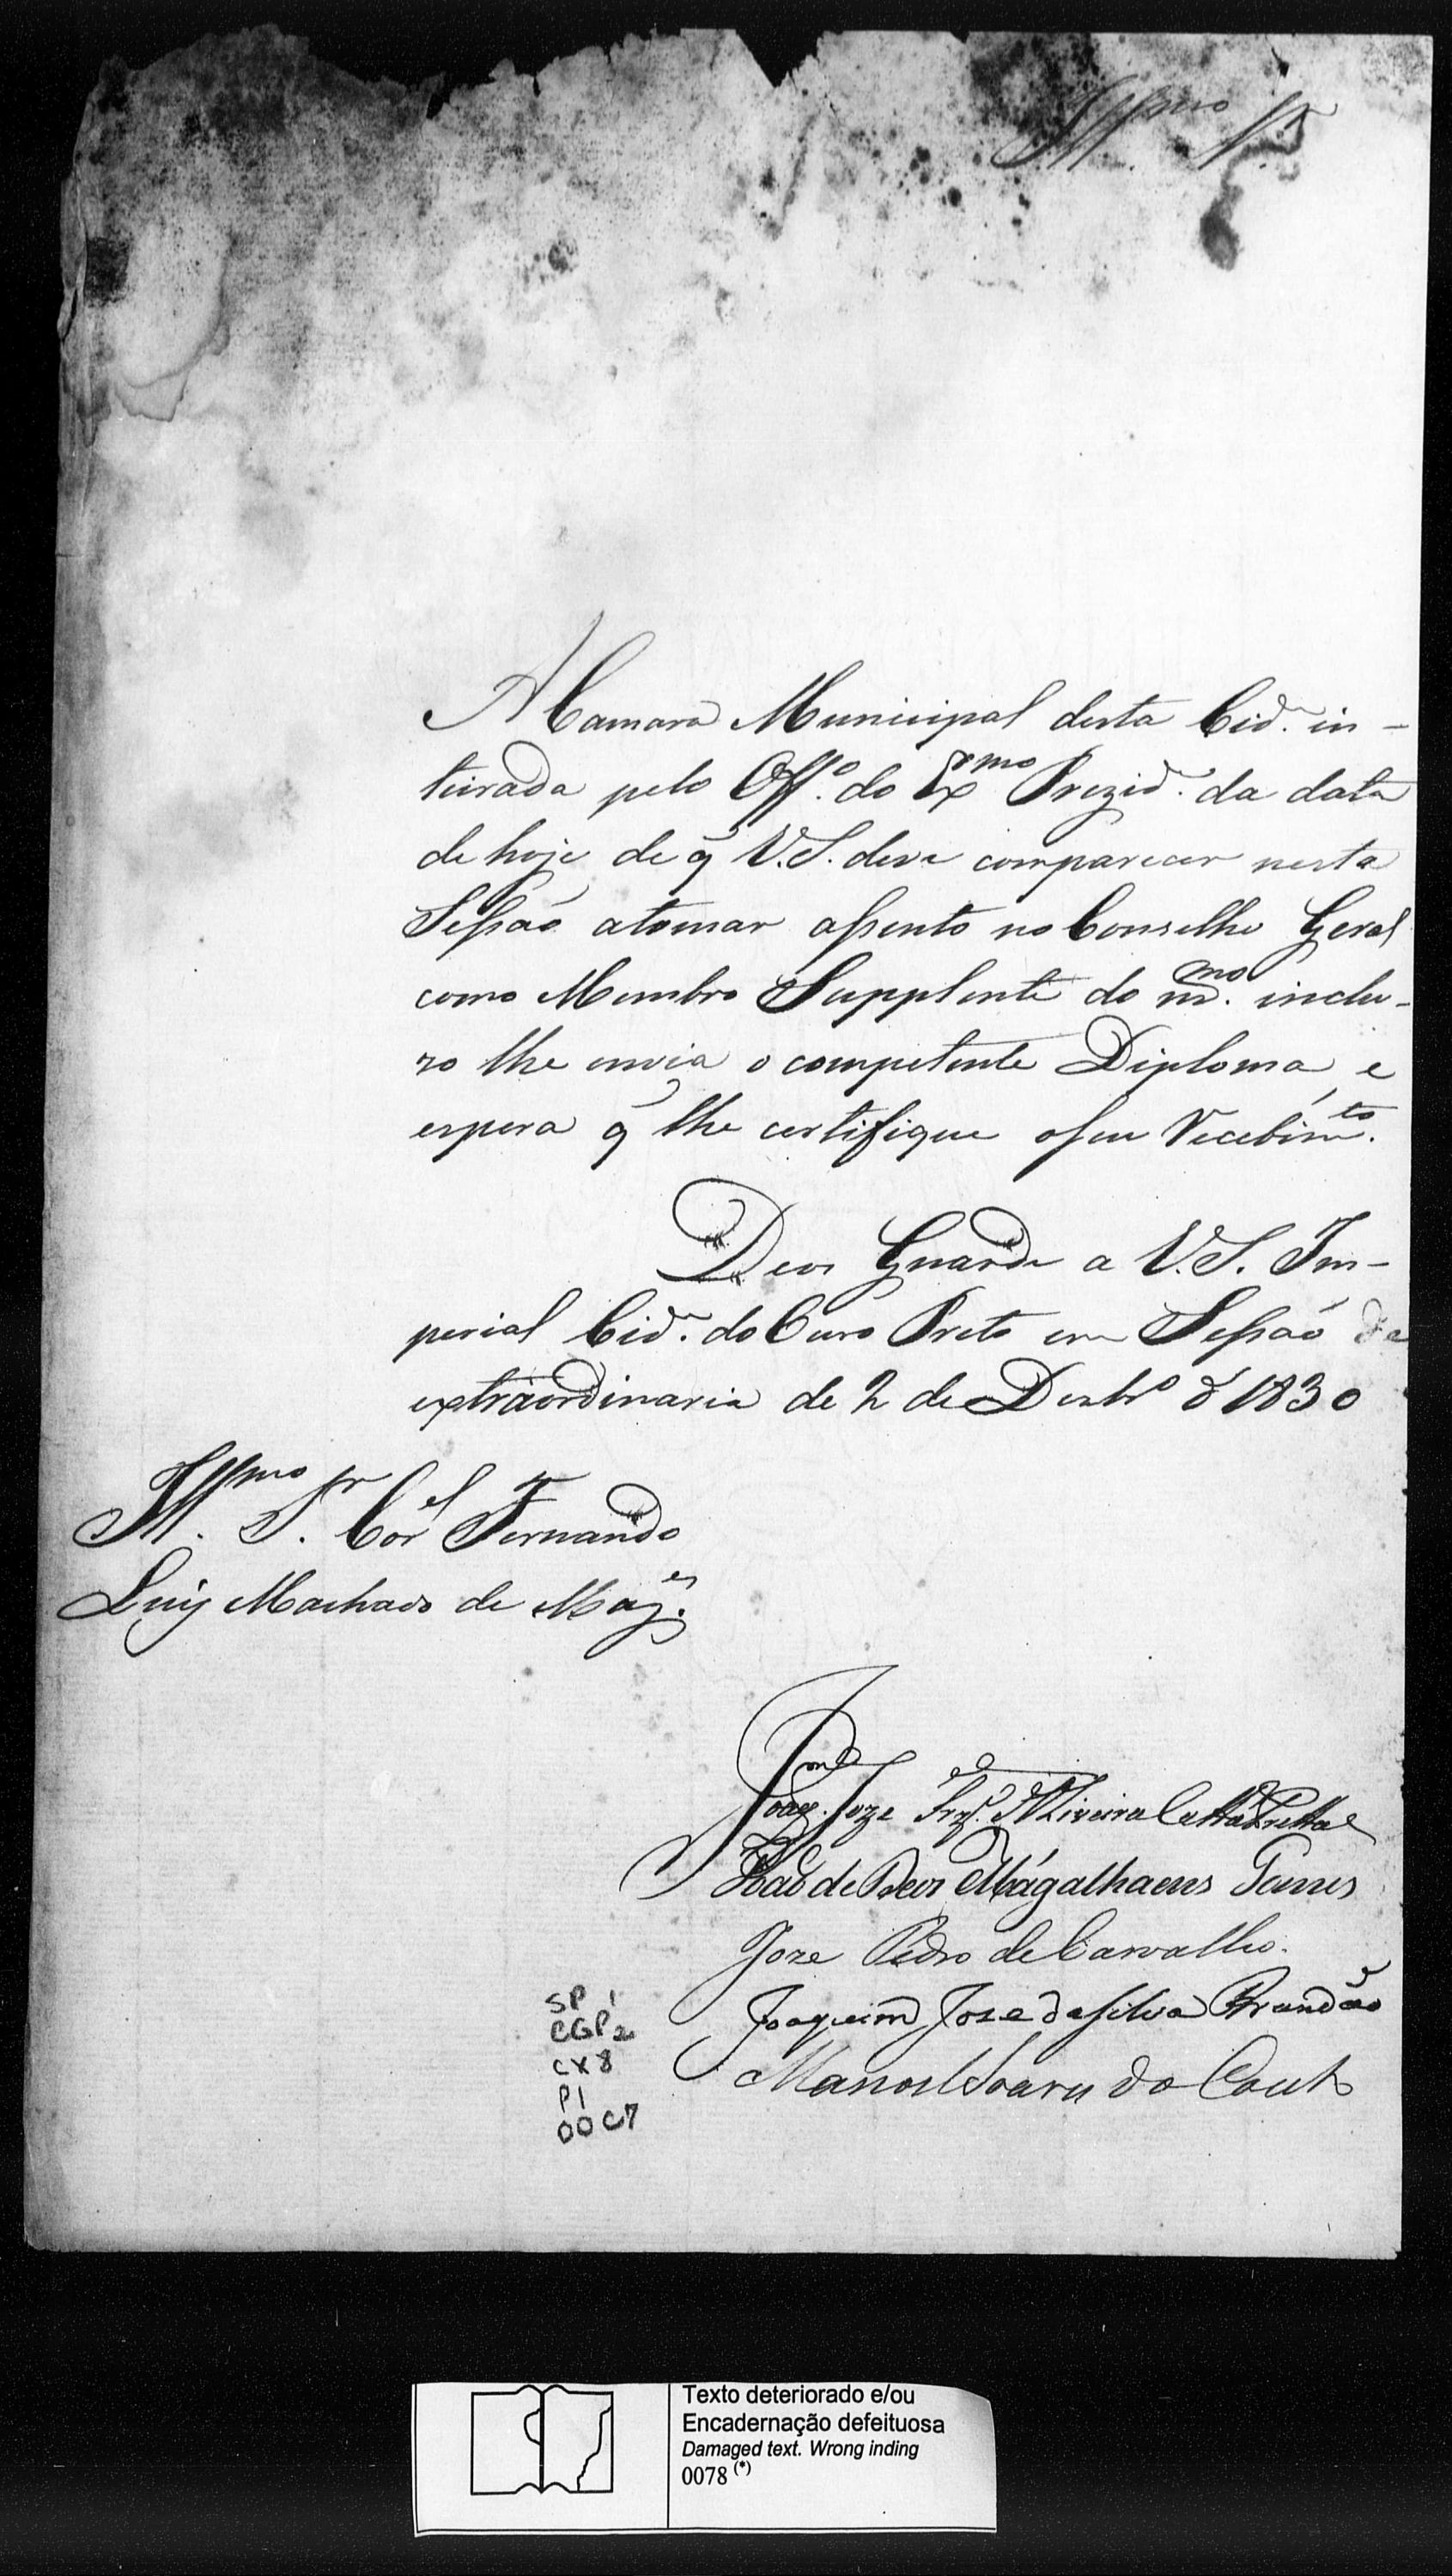 Illmo Sr
A Camara Municipal desta Cide. in-
teirada pelo Offo. do Exmo Prezide. da data
de hoje de q̃ V.S. deve comparecer nesta
Sessão atomar assento no Conselho Geral
como Membro Supplente do mmo. inclu-
zo lhe envia o competente Diploma, e
espera q̃ lhe certifique oseu recebimto.
Deos Guarde a V.S. Im-
perial Cide. do Ouro Preto em Sessão
extraordinaria de 2 de Dezbro d 1830
Illmo. Sr. Corel Fernando
Luiz Machado de Mages.
Joaqm. Joze d'Oliveira Catta Pretta
João de Deos Magalhaens Gomes
Joze Pedro de Carvalho.
Joaquim Joze da Silva Brandão
Manoel Soares do Couto
SP 1
CGP2
CX 8
P1
DOC7
Texto deteriorado e/ou
Encadernação defeituosa
Damaged text. Wrong inding
0078 (*)